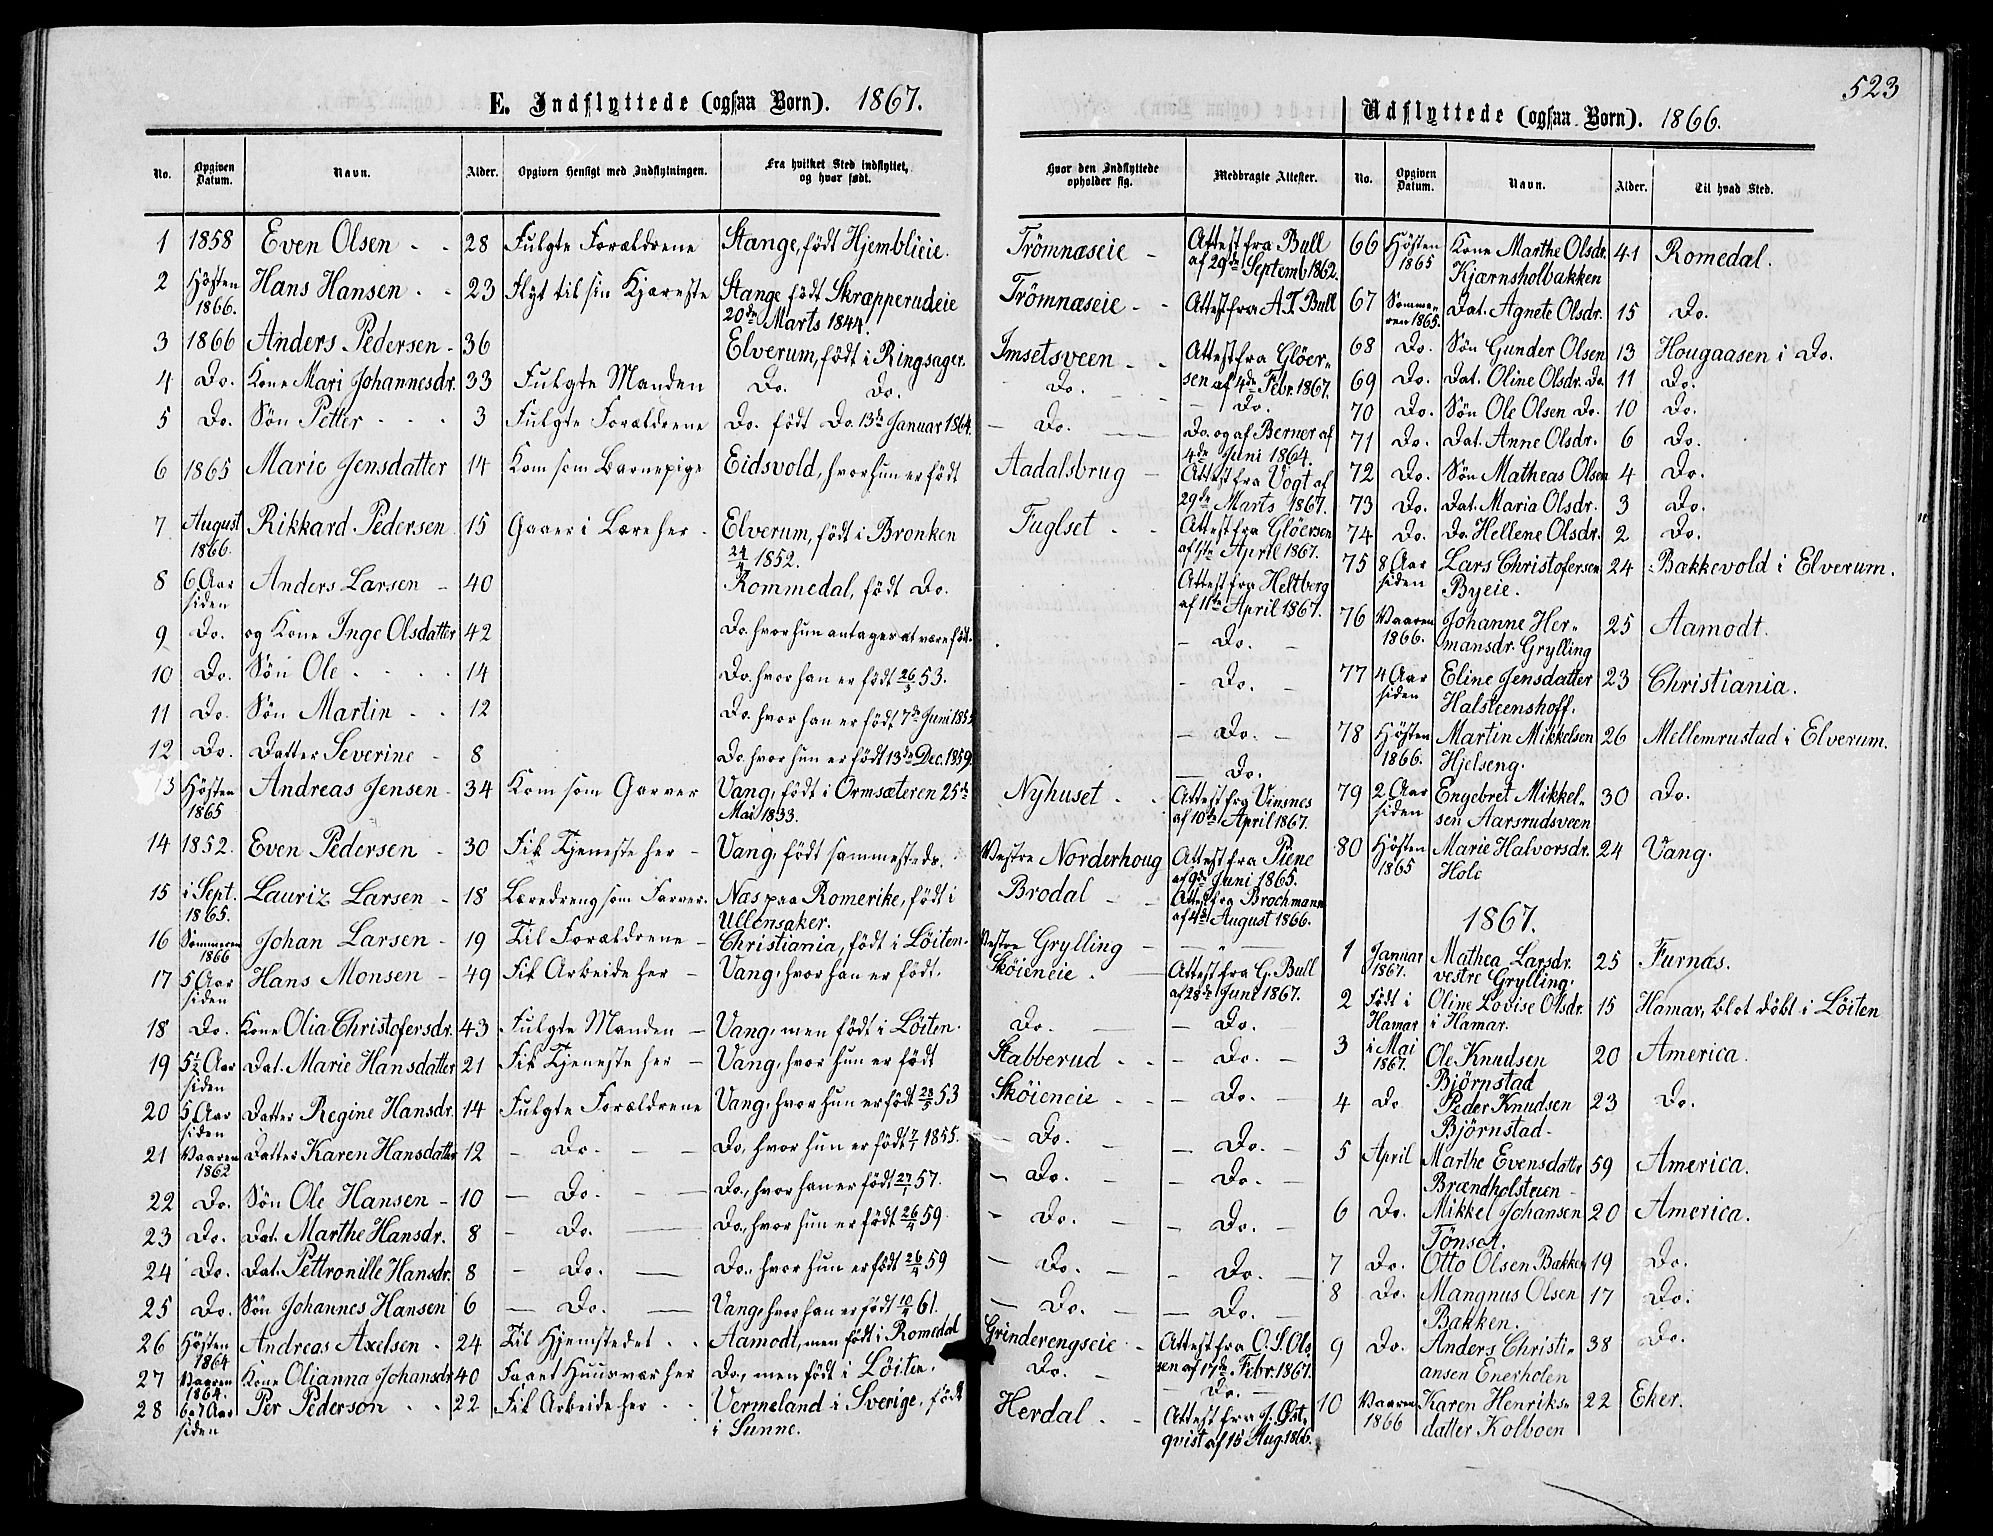 523
E. Indflyttede (ogsaa Born). 1867.
No. Opgiven Datum. Navn. Alder. Opgiven Hensigt med Indflytningen. Fra hvilket Sted indflyttet, og hvor født.
1 1858 Even Olsen 28 Fulgte Forældrene Stange, født Hjemblieie.
2 Høsten 1866. Hans Hansen 23 Flyt til sin Kjæreste Stange født Skrapperudeie 20de Marts 1844.
3 1866 Anders Pedersen 36 Elverum, født i Ringsager.
4 Do. Kone Mari Johannesdr. 33 Fulgte Manden Do. Do.
5 Do. Søn Petter 3 Fulgte Forældrene Do. født Do. 13de Januar 1864.
6 1865 Marie Jensdatter 14 Kom som Barnepige Eidsvold, hvor hun er født
7 August 1866. Rikkard Pedersen 15 Gaaer i Lære her Elverum, født i Bronken 24/4 1852.
8 6 Aar siden Anders Larsen 40 Rommedal, født Do.
9 Do. og Kone Inge Olsdatter 42 Do. hvor hun antages at være født.
10 Do. Søn Ole 14 Do. hvor han er født 26/5 53.
11 Do. Søn Martin 12 Do. hvor han er født 7de Juni 1855
12 Do. Datter Severine 8 Do. hvor hun er født 13de Dec. 1859
13 Høsten 1865 Andreas Jensen 34 Kom som Garver Vang, født i Ormsæteren 25de Mai 1833.
14 1852. Even Pedersen 30 Fik Tjeneste her Vang, født sammesteds.
15 i Sept. 1865. Lauriz Larsen 18 Læredreng som Farver. Næs paa Romerike, født i Ullensaker.
16 Sommeren 1866 Johan Larsen 19 Til Forældrene Christiania, født i Løiten.
17 5 Aar siden Hans Monsen 49 Fik Arbeide her Vang, hvor han er født.
18 Do. Kone Olia Christofersdr. 43 Fulgte Manden Vang, men født i Løiten.
19 5½ Aar siden Dat. Marie Hansdatter 21 Fik Tjeneste her Vang, hvor hun er født
20 5 Aar siden Datter Regine Hansdr. 14 Fulgte Forældrene Vang, hvor hun er født 28/5 53
21 Vaaren 1862 Datter Karen Hansdatter 12 Do. Do., hvor hun er født 7/1 1855.
22 Do. Søn Ole Hansen 10 Do. Do., hvor han er født 27/1 57.
23 Do. Dat. Marthe Hansdr. 8 Do. Do., hvor hun er født 26/4 59
24 Do. Dat. Pettronille Hansdr. 8 Do. Do., hvor hun er født 26/4 59
25 Do. Søn Johannes Hansen 6 Do. Vang, hvor han er født 10/4 61.
26 Høsten 1864 Andreas Axelsen 24 Til Hjemstedet Aamodt, men født i Romedal
27 Vaaren 1864. Kone Olianna Johansdr 40 Faaet Huusvær her Do., men født i Løiten.
28 6 a 7 Aar siden Per Pederson 22 Fik Arbeide her Vermeland i Sverige, født i Sunne.
Hvor den Indflyttede opholder sig. Medbragte Attester.
Trömnæseie Attest fra Bull af 29de Septemb 1862.
Trömnæseie Attest fra A. T. Bull
Imsetsveen Attest fra Glöersen af 4de Febr. 1867.
Do. Do.
Do. Do. og af Berner af 4de Juni 1864.
Aadalsbrug Attest fra Vogt af 29de Marts 1867.
Fuglset Attest fra Glöersen af 1ste April 1867.
Attest fra Heltberg af 11te April 1867.
Do.
Do.
Do.
Do.
Nyhuset Attest fra Vinsnes af 10de April 1867.
Vestre Norderhoug Attest fra Piene af 9de Juni 1865.
Brodal Attest fra Brochmann af 4de August 1866.
Vestre Grylling
Sköieneie Attest fra G. Bull af 28de Juni 1867.
Do. Do.
Stabberud Do.
Sköieneie Do.
Do. Do.
Do. Do.
Do. Do.
Do. Do.
Do. Do.
Grinderengseie Attest fra O. S. Olssen af 17de Febr. 1867.
Do. Do.
Herdal Attest fra J. Østqvist af 15 Aug. 1866.
Udflyttede (ogsaa Born). 1866.
No. Opgiven Datum. Navn. Alder. Til hvad Sted.
66 Høsten 1865 Kone Marthe Olsdr. Kjærnsholbakken 41 Romedal.
67 Sommeren 1865. Dat. Agnete Olsdr. 15 Do.
68 Do. Søn Gunder Olsen 13 Hougaasen i Do.
69 Do. Dat. Oline Olsdr. Do. 11 Do.
70 Do. Søn Ole Olsen Do. 10 Do.
71 Do. Dat. Anne Olsdr. 6 Do.
72 Do. Søn Matheas Olsen 4 Do.
73 Do. Dat. Maria Olsdr. 3 Do.
74 Do. Do. Hellene Olsdr. 2 Do.
75 8 Aar siden Lars Christofersen Byeie. 24 Bakkevold i Elverum.
76 Vaaren 1866. Johanne Hermansdr. Grylling 25 Aamodt.
77 4 Aar siden Eline Jensdatter Halsteenshoff. 23 Christiania.
78 Høsten 1866. Martin Mikkelsen Hjelseng. 26 Mellemrustad i Elverum.
79 2 Aar siden Engebret Mikkelsen Aarsrudsveen 30 Do.
80 Høsten 1865 Marie Halvorsdr. Hole 24 Vang.
1867.
1 Januar 1867. Mathea Larsdr. vestre Grylling. 25 Furnæs.
2 Født i Hamar Oline Lovise Olsdr. i Hamar. 15 Hamar, blot døbt i Løiten
3 i Mai 1867. Ole Knudsen Björnstad 20 America.
4 Do Peder Knudsen Björnstad. 23 Do.
5 April Marthe Evensdatter Brændholsteien 59 America.
6 Do. Mikkel Johansen Tönset. 20 America.
7 Do. Otto Olsen Bakken 19 Do.
8 Do. Mangnus Olsen Bakken. 17 Do.
9 Do. Anders Christiansen Enerholen 38 Do.
10 Vaaren 1866 Karen Henriksdatter Kolboen 22 Eker.